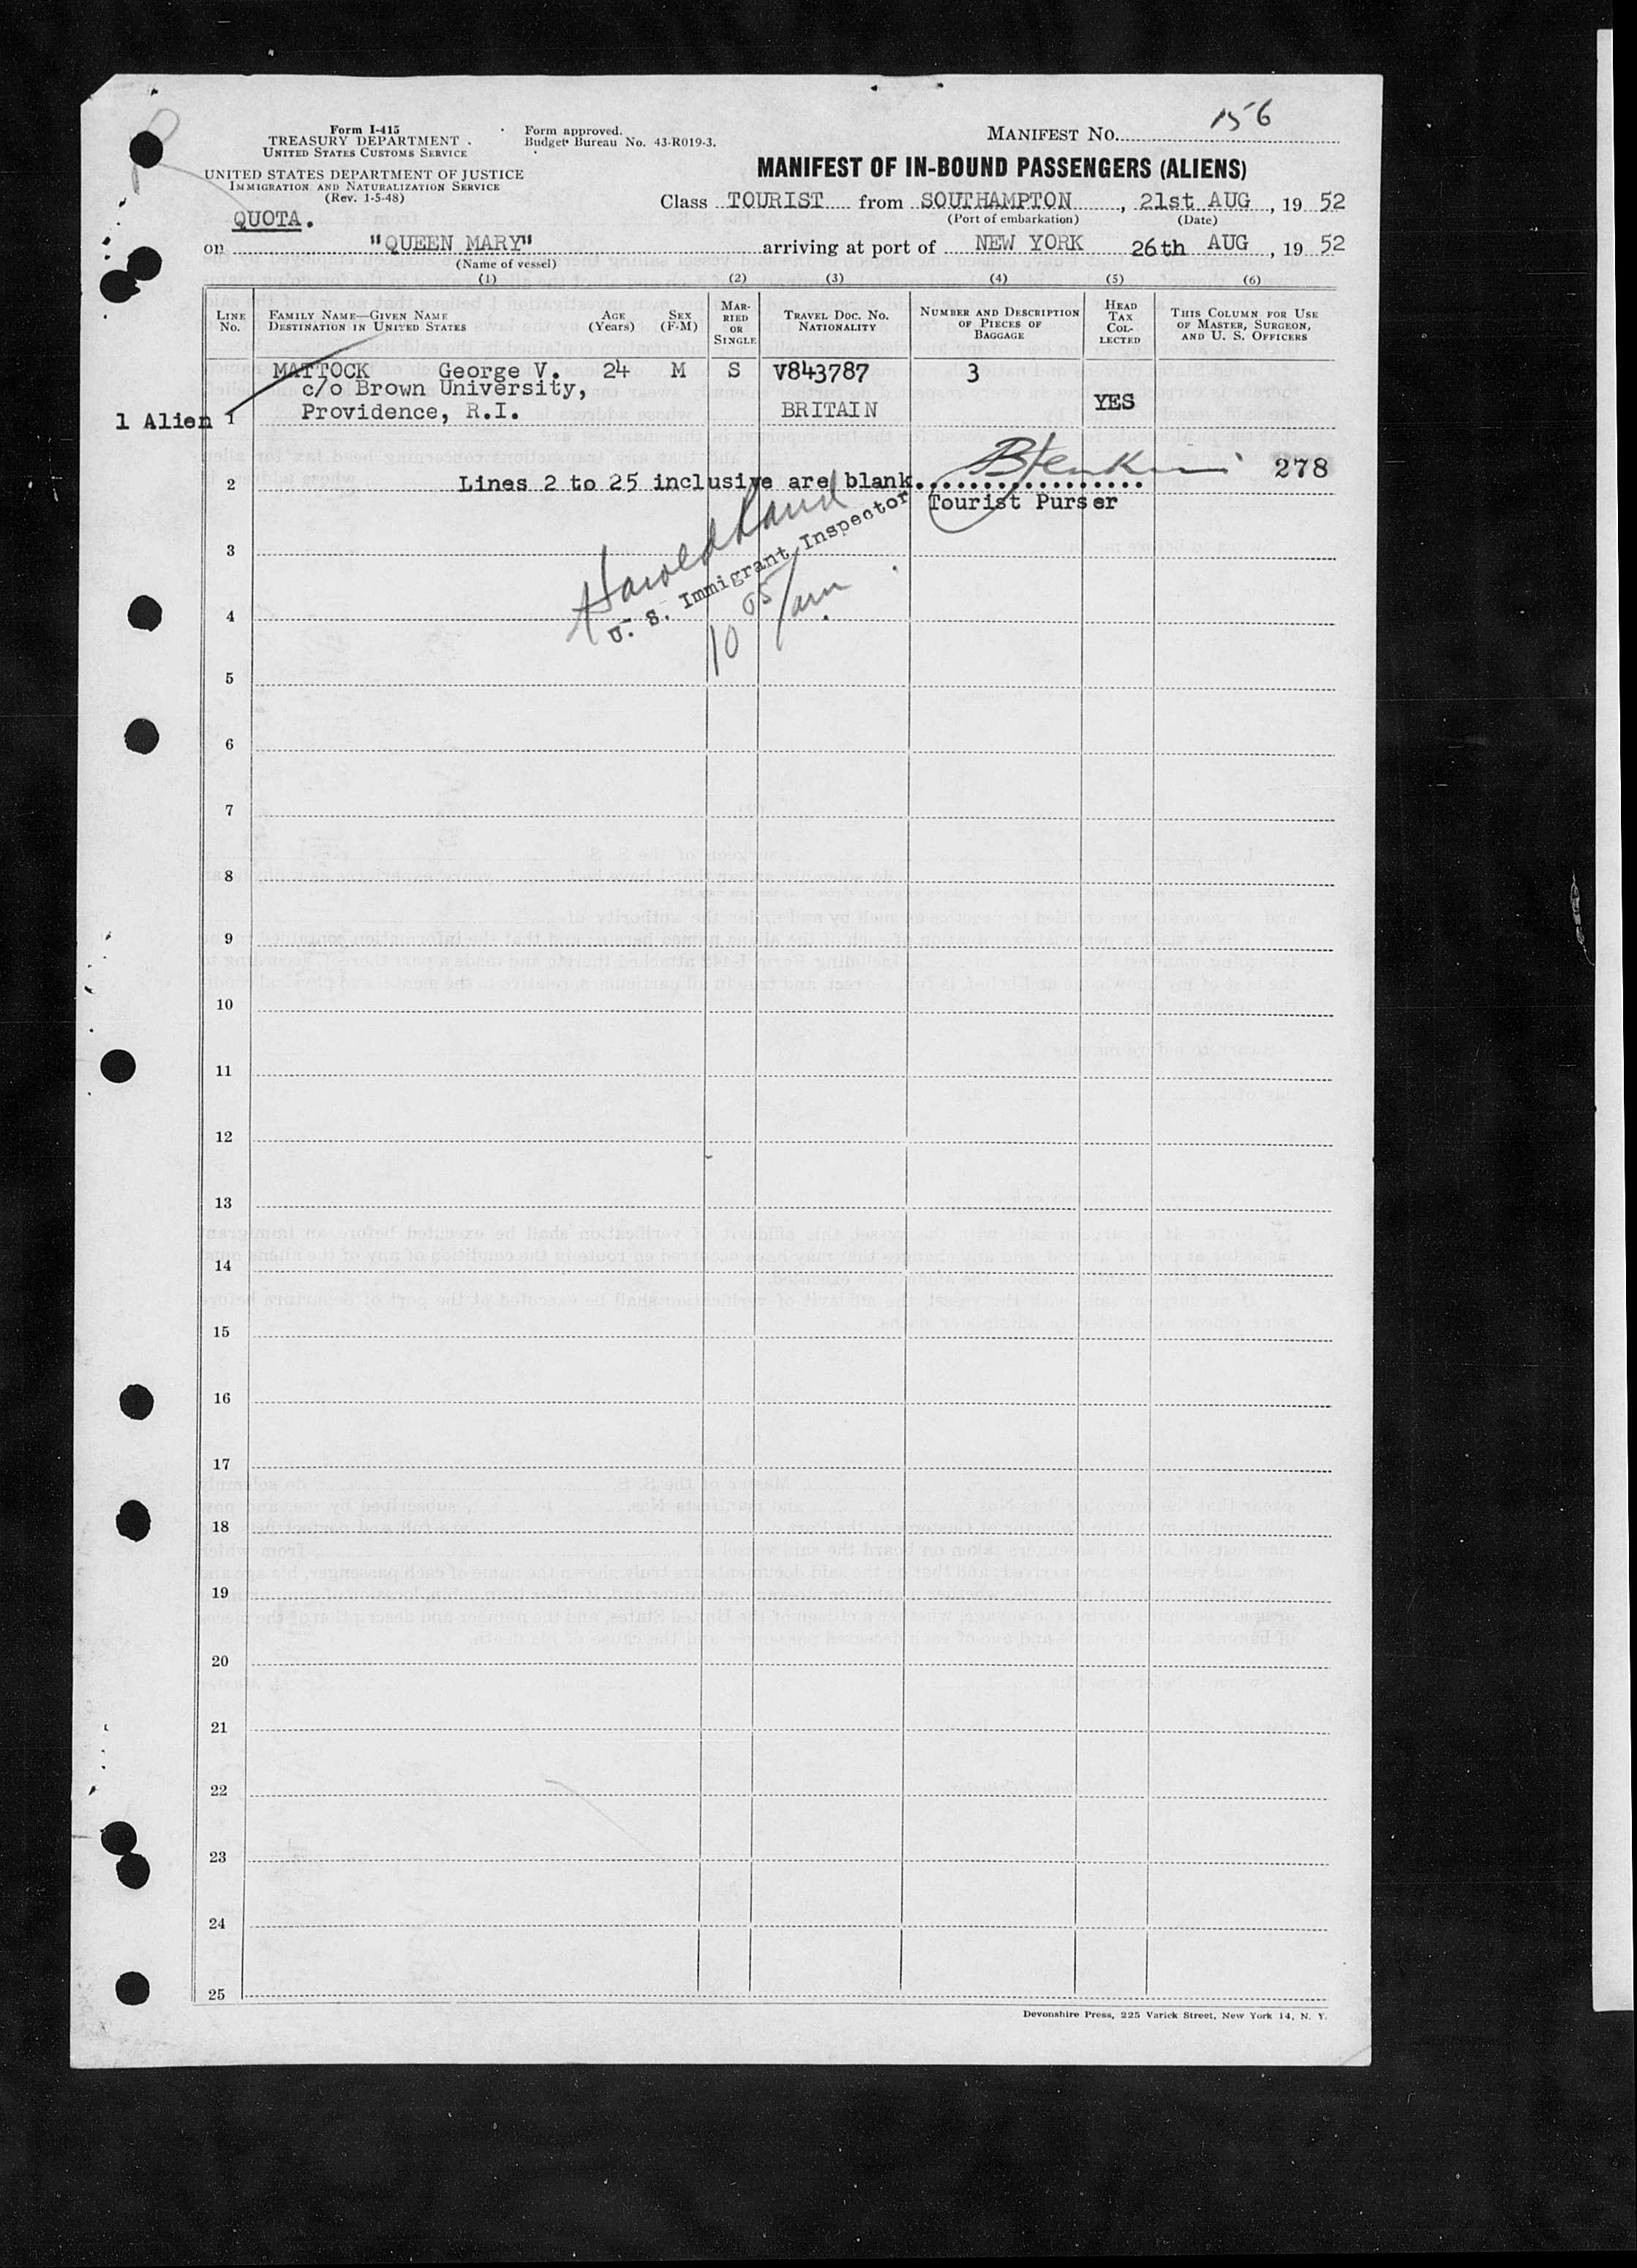 156
Form I-415
TREASURY DEPARTMENT
UNITED STATES CUSTOMS SERVICE
Form approved.
Budget Bureau No. 43-R019-3.
MANIFEST NO.
UNITED STATES DEPARTMENT OF JUSTICE
IMMIGRATION AND NATURALIZATION SERVICE
(Rev. 1-5-48)
MANIFEST OF IN-BOUND PASSENGERS (ALIENS)
QUOTA.
Class TOURIST from SOUTHAMPTON, 21st AUG, 19 52
(Port of embarkation) (Date)
on "QUEEN MARY" arriving at port of NEW YORK 26th AUG, 19 52
(Name of vessel)
(1) (2) (3) (4) (5) (6)
LINE NO.
FAMILY NAME—GIVEN NAME
DESTINATION IN UNITED STATES
AGE (Years)
SEX (F-M)
MARRIED OR SINGLE
TRAVEL DOC. NO.
NATIONALITY
NUMBER AND DESCRIPTION OF PIECES OF BAGGAGE
HEAD TAX COLLECTED
THIS COLUMN FOR USE OF MASTER, SURGEON, AND U. S. OFFICERS
MATTOCK George V. 24 M S V843787 3
c/o Brown University,
1 Alien 1 Providence, R.I. BRITAIN YES
278
2 Lines 2 to 25 inclusive are blank.
Tourist Purser
Harold
U. S. Immigrant Inspector
10 05/am
3
4
5
6
7
8
9
10
11
12
13
14
15
16
17
18
19
20
21
22
23
24
25
Devonshire Press, 225 Varick Street, New York 14, N. Y.